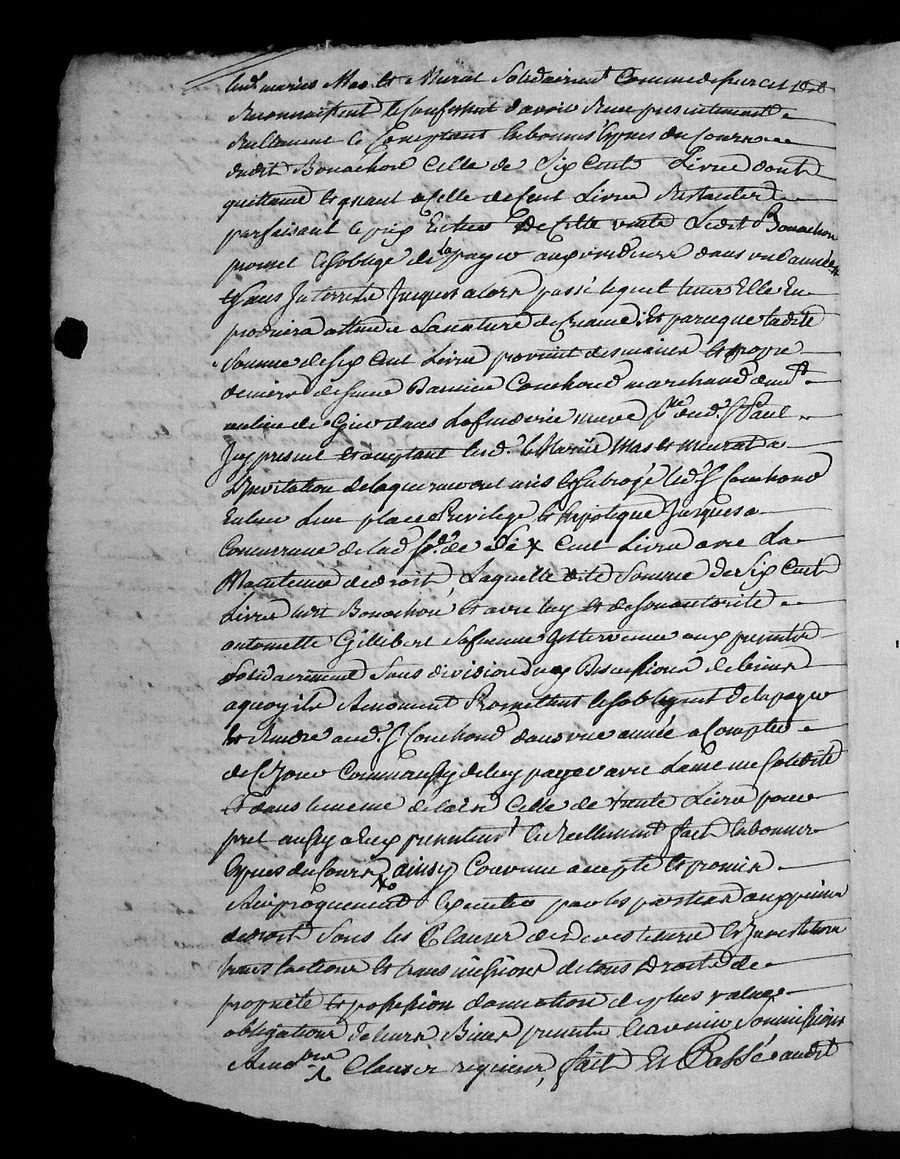 lesd. mariés Mas et Murat solidairement comme dessus
Reconnoissent et confessent d'avoir Reçu presentement
Reellement et comptant en bonnes Espèces du Cours
dudit Bonachon Celle de Six Cents Livres dont
quittance et quant a celle de Cent Livres Restantes
parfaisant le prix Entier De Cette vente Ledit Sr Bonachon
promet et s'oblige de la payer aux vendeurs dans une année
et sans Interrets Jusques alors passé lequel tems Elle En
produira attendu La nature de Creance, Et parceque ladite
Somme de Six Cent Livres provient des mains et propre
deniers de sieur Couchoud marchand
moulinier de Gier dans La fenderie neuve Sr Paul
Icy present et acceptant lesd. Mariés Mas et Murat a
L'Invitation de laquereur ont mis et subrogé led. Sr Couchoud
En leur Lieu place Privilege et hipoteque Jusques a
Concurrence de lad. So. de Six Cent Livres avec La
Maintenue de droit, Laquelle dite Somme de Six Cent
Livres led. Bonachon et avec luy et de son autorité
antoinette Gillibert sa femme Intervenue aux presentes
Solidairement Sans division ny Discussion de biens
a quoy ils Renoncent Promettent et s'obligent de la payer
et Rendre aud. Sr Couchoud dans une année a Compter
de Ce Jour Comme aussy de luy payer avec La meme solidité
Et dans le meme delais Celle de trente Livres pour
pret aussy a Eux presentement et Reellement fait En bonnes
Espèces du Cours, ainsy Convenu accepté et promis
Reciproquement Executer par les parties aux peines
de droit Sous les Clauses de Devestiture et Investiture
translations et transmissions de tous Droits de
propriété et possession donnation de plus value
obligations de leurs Biens presents et avenir Soumissions
Renon. Clauses requises, fait Et Passé audit